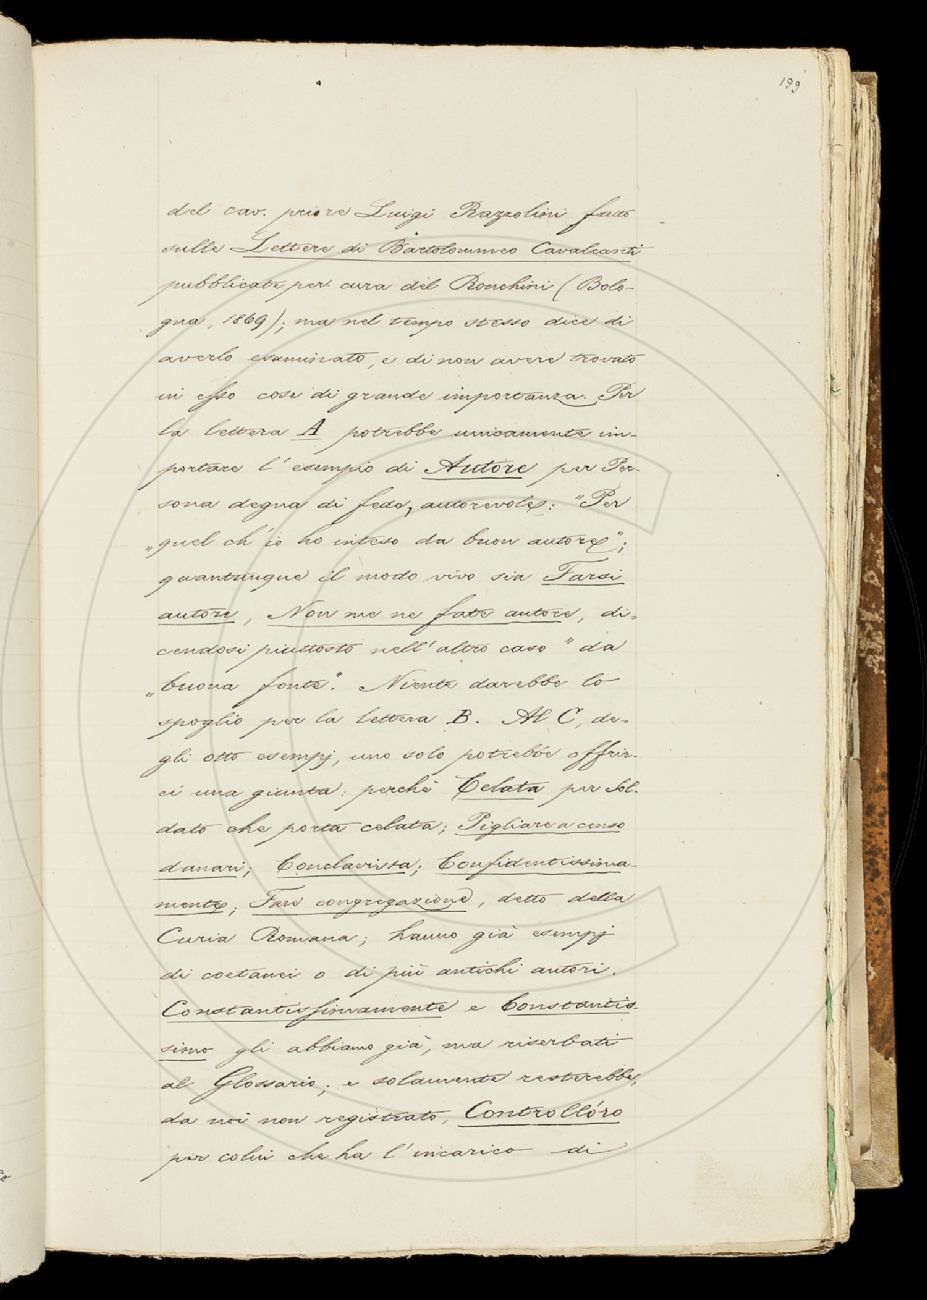 199
del cav. priore Luigi Razzolini fatto
sulle Lettere di Bartolommeo Cavalcanti
pubblicate per cura del Ronchini (Bolo-
gna, 1869); ma nel tempo stesso dice di
averlo esaminato, e di non avere trovato
in esso cose di grande importanza. Per
la lettera A potrebbe unicamente im-
portare l'esempio di Autore per Per-
sona degna di fede, autorevole: "Per
„quel ch'io ho inteso da buon autore";
quantunque il modo vivo sia Farsi
autore, Non me ne fate autore, di-
cendosi piuttosto nell'altro caso "da
„buona fonte". Niente darebbe lo
spoglio per la lettera B. Al C, de-
gli otto esempj, uno solo potrebbe offrir-
ci una giunta: perchè Celata per Sol-
dato che porta celata; Pigliare a censo
danari; Conclavista; Confidentissima-
mente; Fare congregazione, detto della
Curia Romana; hanno già esempj
di coetanei o di più antichi autori.
Constantissimamente e Constantis-
simo gli abbiamo già, ma riserbati
al Glossario; e solamente resterebbe,
da noi non registrato, Controllóro
per colui che ha l'incarico di